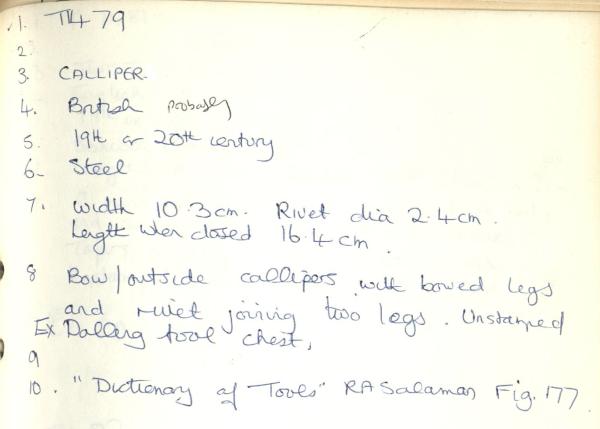 1. TL479
2.
3. CALLIPER.
4. British probably
5. 19th or 20th century
6. Steel
7. Width 10.3cm. Rivet dia 2.4cm.
Length when closed 16.4cm.
8 Bow/outside callipers with bowed legs
and rivet joining two legs. Unstamped
Ex Dalling tool chest,
9
10. "Dictionary of Tools" RA Salaman Fig. 177